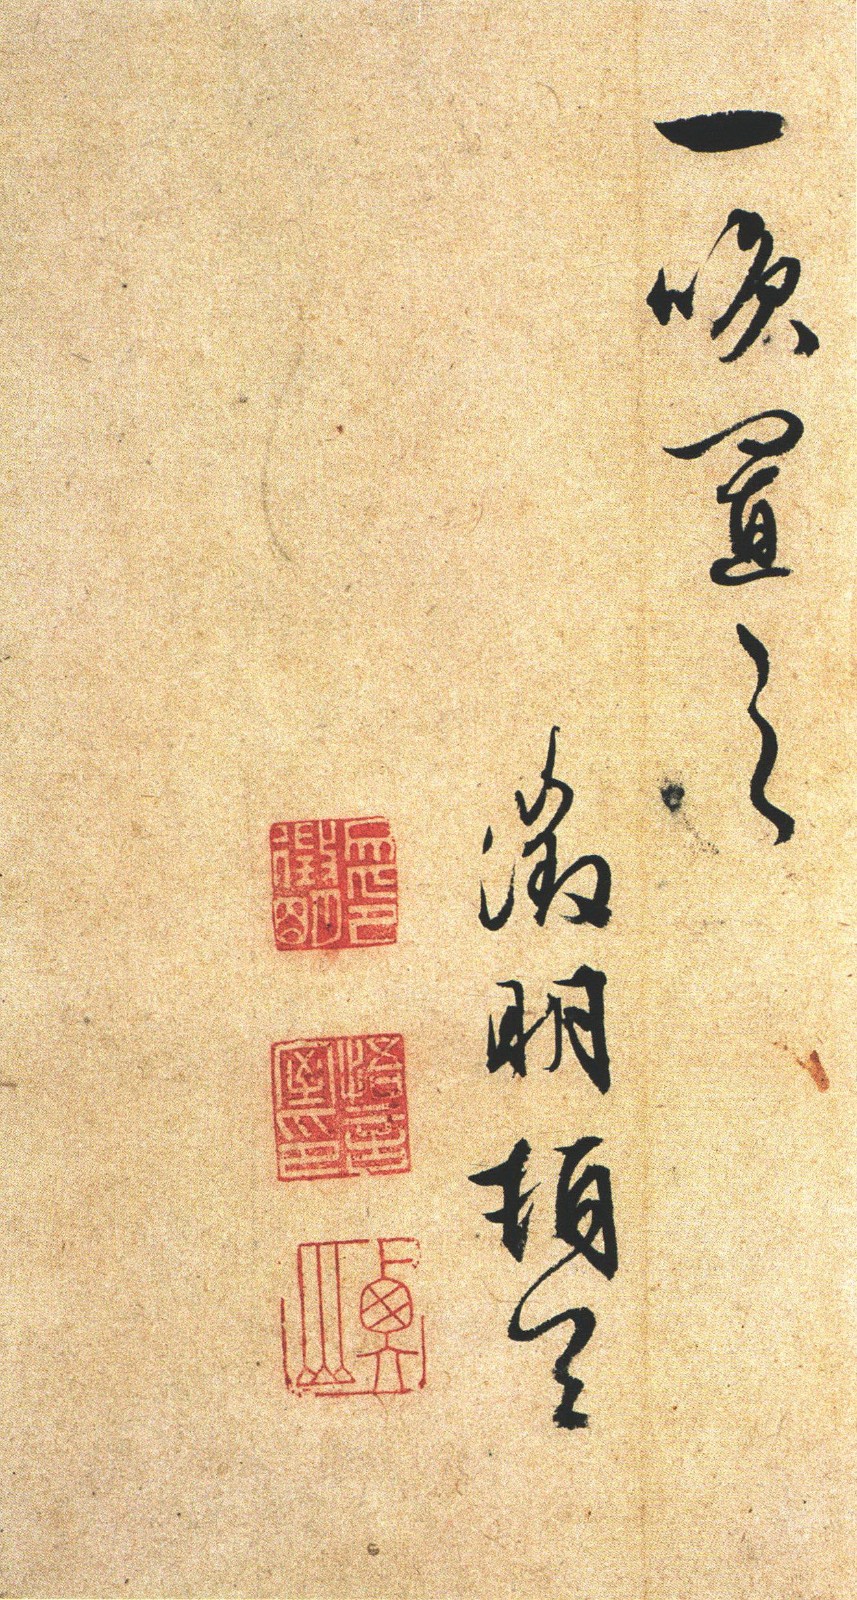 一咲置之
徵明頓首